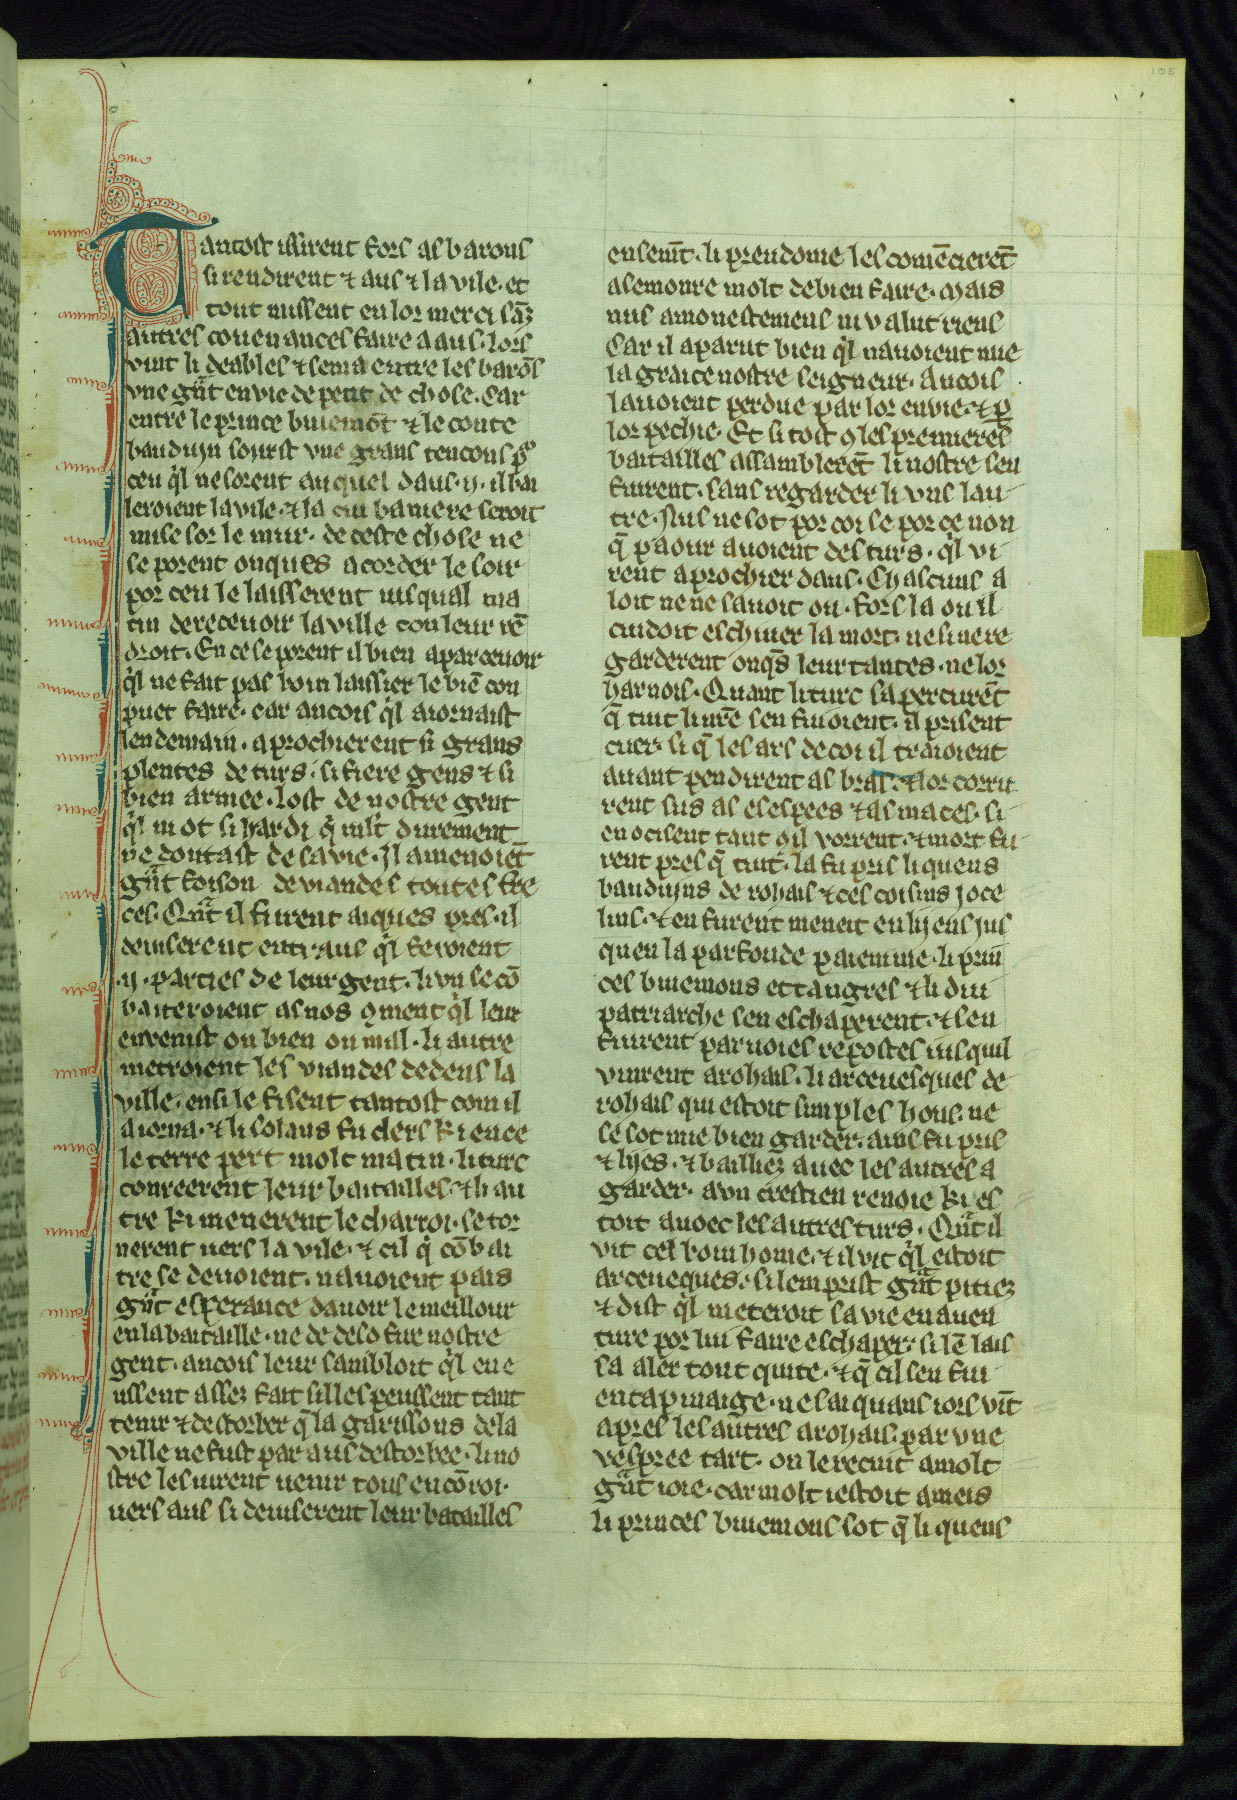 105
Tantost issirent fors as barons
si rendirent ⁊ aus ⁊ la vile. et
tout missent en lor merci sãz
autres couenances faire a aus. lors
vint li deables ⁊ sema entre les barõs
vne gñt enuie de petit de chose. Car
entre le prince buiemõt ⁊ le conte
bauduyn sourst vne grans tencons ꝑ
ceu ql ne sorent auquel daus .ij. il bai
leroient la vile. ⁊ la cui baniere seroit
mise sor le mur. de ceste chose ne
se porent onques acorder le soir
por ceu le laisserent iusqual ma
tin de receuoir la ville con leur rẽ
droit. En ce se porent il bien aparceuoir
ql ne fait pas boin laissier le biẽ con
puet faire. car ancois ql aiornaist
lendemain. aprochierent si grans
plentes de turs. si fiere gens ⁊ si
bien armee. lost de nostre gent
ql not si hardi q̃ mlt durement
ne doutast de sa vie. Il amenoiẽt
gñt foison de viandes toutes fre
ces. Qñt il furent aiques pres. il
deuiserent entraus ql feroient
.ij. parties de leur gent. li vn se cõ
baiteroient as nos ꝯment ql leur
enuenist ou bien ou mal. li autre
metroient les viandes dedens la
ville. ensi le fisent tantost com il
aiorna. ⁊ li solaus fu clers ki en ce
le terre pert molt matin. li turc
conreerent leur baitailles. ⁊ li au
tre ki menerent le charroi. se tor
nerent uers la vile. ⁊ cil q̃ cõbai
tre se deuoient. nauoient pais
gñt esperance dauoir le meillour
en la baitaille. ne de desõfire nostre
gent. ancois leur sambloit ql en e
ussent assez fait silles peussent tant
tenir ⁊ destorber q̃ la garissons de la
ville ne fust par aus destorbee. li no
stre les uirent uenir tous en cõroi.
uers aus si deuiserent leur batailles
ensemt̃. li preudome les comẽcierẽt
a semonre molt de bien faire. Mais
nus amonestemens ni valut riens
Car il aparut bien ql nauoient mie
la graice nostre seigneur. Ancois
lauoient perdue par lor enuie. ⁊ ꝑ
lor pechie. Et si tost ꝯ les premieres
baitailles assamblerẽt li nostre sen
fuirent. sans regarder li vns lau
tre. Nus ne sot por coi se por ce non
q̃ paour auoient des turs. ql vi
rent aprochier daus. Chascuns a
loit ne ne sauoit ou. fors la ou il
cuidoit eschiuer la mort. ne si ne re
garderent onq̃s leur tantes. ne lor
harnois. Quant li turc sapercurẽt
q̃ tuit li nr̃e sen fuioient. il prisent
cuer. si q̃ les ars de coi il traioient
auant pendirent as bras. ⁊ lor corru
rent sus as es espees ⁊ as maces. si
en ocisent tant ꝯ il vorrent. ⁊ mort fu
rent pres q̃ tuit. la fu pris li quens
bauduyns de rohais ⁊ ces coisins joce
lins. ⁊ en furent meneit en lyens jus
quen la parfonde paiennie. li prin
ces buiemons et tangres ⁊ li dui
patriarche sen eschaperent. ⁊ sen
fuirent par uoies repostes iusquil
vinrent a rohais. li arceuesques de
rohais qui estoit simples hons. ne
se sot mie bien garder. ains fu pris
⁊ lyes. ⁊ bailliez auec les autres a
garder. a vn crestien renoie ki es
toit auoec les autres turs. Qñt il
vit cel boin home. ⁊ il vit ql estoit
arceueques. si lem prist gñt pitiez
⁊ dist ql meteroit sa vie en auen
ture por lui faire eschaper. si lẽ lais
sa aler tout quite. ⁊ q̃ cil sen fui
en tapinaige. ne sai quans iors vĩt
apres les autres a rohais. par vne
vespree tart. on le recuit a molt
gñt ioie. car molt iestoit ameis
li princes buiemons sot q̃ li quens